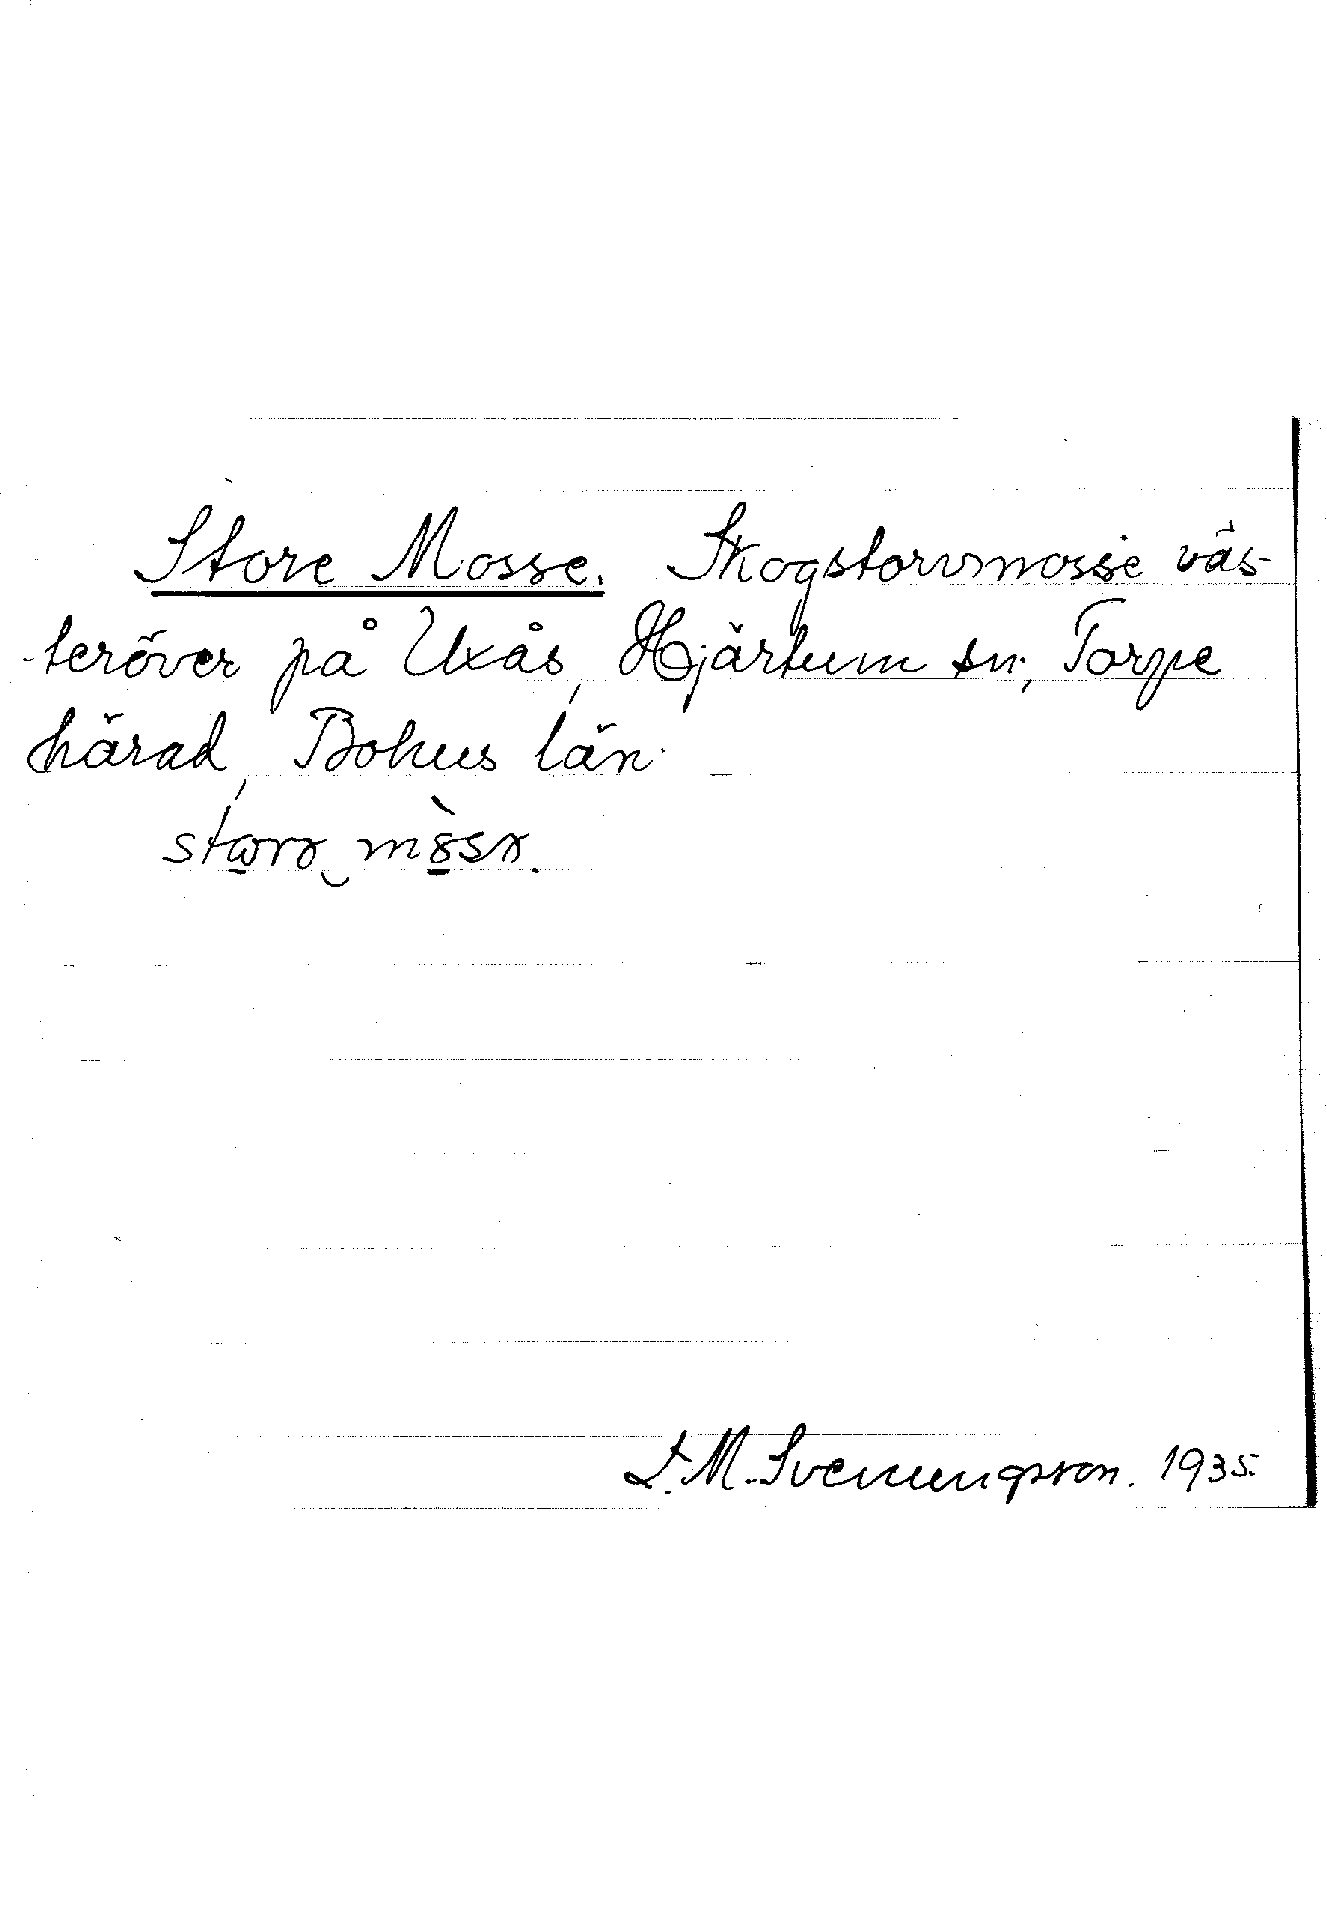 Store Mosse. Skogstorvmosse väs-
teröver på Uxås, Hjärtum sn, Torpe
härad, Bohus län.
L. M. Svenungsson. 1935.